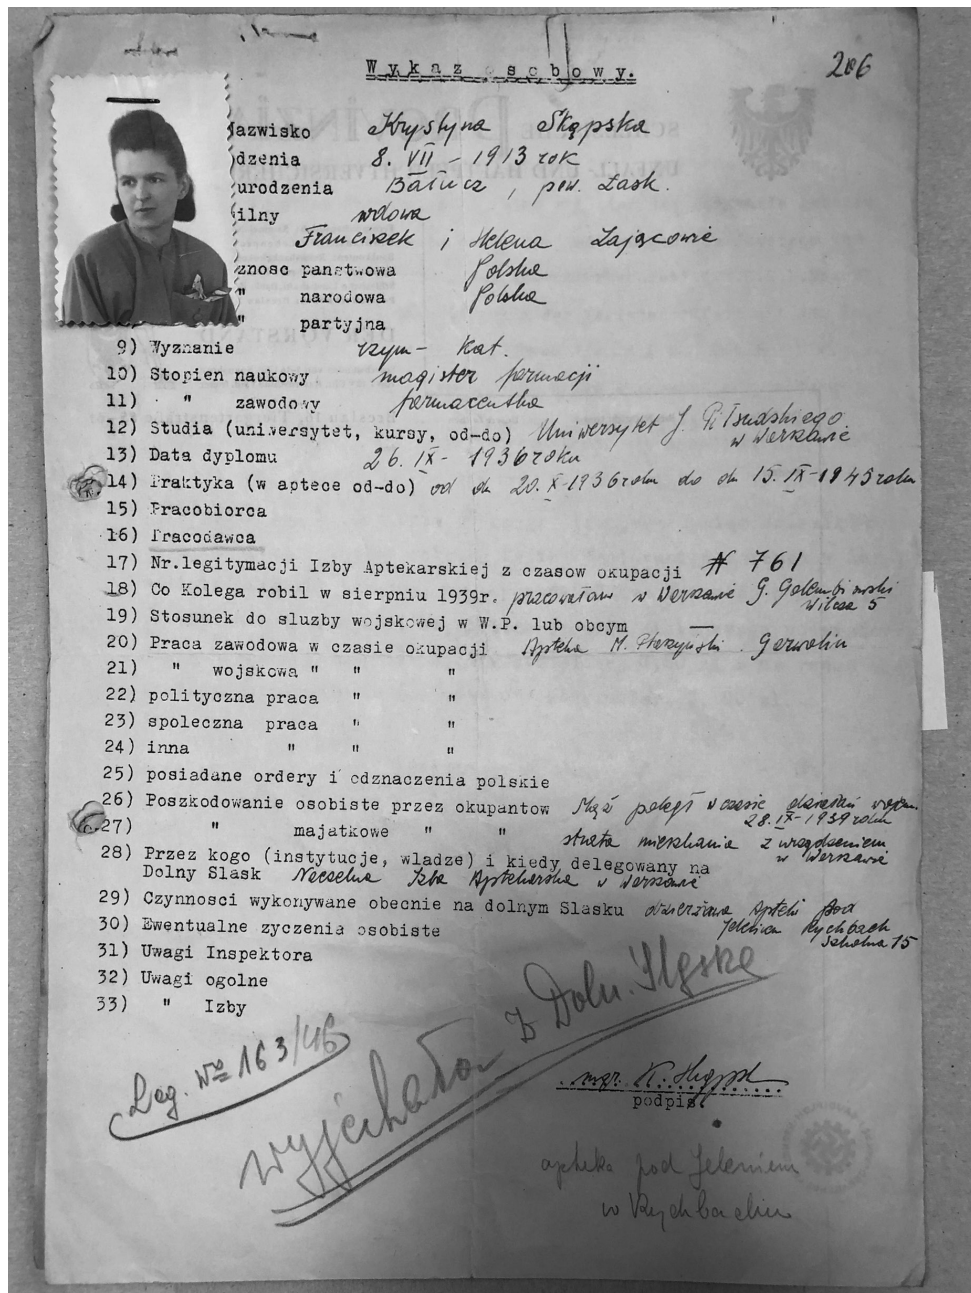 Wykaz osobowy.
206
azwisko Krystyna Skąpska
dzenia 8. VII - 1913 rok
urodzenia Bałucz, pow. Łask.
ilny wdowa
Franciszek i Helena Zającowie
znosc panstwowa Polska
" narodowa Polska
" partyjna
9) Wyznanie rzym- kat.
10) Stopien naukowy magister farmacji
11) " zawodowy farmaceutka
12) Studia (uniwersytet, kursy, od-do) Uniwersytet J. Piłsudskiego
w Warszawie
13) Data dyplomu 26. IX - 1936 roku
14) Praktyka (w aptece od-do) od dn 20. X-1936 roku do dn 15. IX-1945 roku
15) Pracobiorca
16) Pracodawca
17) Nr.legitymacji Izby Aptekarskiej z czasow okupacji N 761
18) Co Kolega robil w sierpniu 1939r. pracowałam w Warszawie G. Gołembiowski
Wilcza 5
19) Stosunek do sluzby wojskowej w W.P. lub obcym —
20) Praca zawodowa w czasie okupacji Apteka M. Garwolin
21) " wojskowa " " "
22) polityczna praca " "
23) spoleczna praca " "
24) inna " " "
25) posiadane ordery i odznaczenia polskie
26) Poszkodowanie osobiste przez okupantow Mąż poległ w czasie działań wojen.
28. IX-1939 roku
27) " majatkowe " " strata mieszkania z urządzeniem
w Warszawie
28) Przez kogo (instytucje, wladze) i kiedy delegowany na
Dolny Slask Naczelna Izba Aptekarska w Warszawie
29) Czynnosci wykonywane obecnie na dolnym Slasku dzierżawa Apteki pod
Jeleniem Rychbach
Szkolna 15
30) Ewentualne zyczenia osobiste
31) Uwagi Inspektora
32) Uwagi ogolne
33) " Izby
Leg. No 163/46
wyjechała z Doln. Śląska
mgr. K. Skąpska
podpis.
apteka pod Jeleniem
w Rychbachu